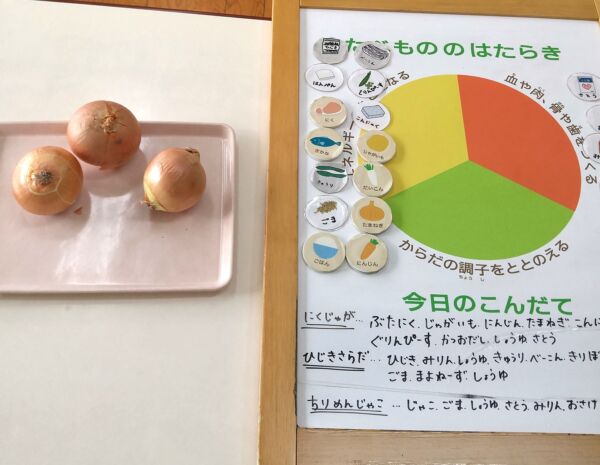 たべもののはたらき
血や肉、骨や歯をつくる
からだの調子をととのえる
ちょうし
はんぺん
にく
こんにゃく
さかな
じゃがいも
きゅうり
だいこん
ごま
たまねぎ
ごはん
にんじん
今日のこんだて
にくじゃが… ぶたにく、じゃがいも、にんじん、たまねぎ、こんに
ぐりんぴーす、かつおだし、しょうゆ、さとう
ひじきさらだ… ひじき、みりん、しょうゆ、きゅうり、べーこん、きりぼ
ごま、まよねーず、しょうゆ
ちりめんじゃこ… じゃこ、ごま、しょうゆ、さとう、みりん、おさけ